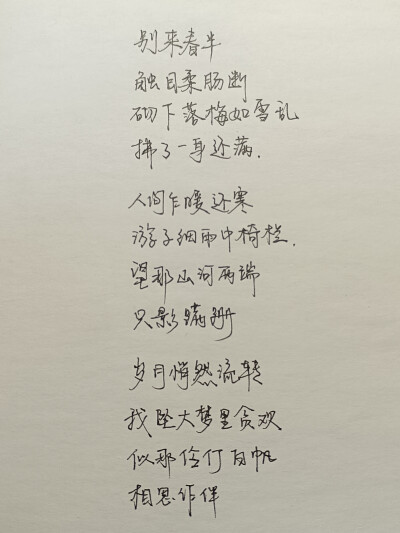 别来春半
触目柔肠断
砌下落梅如雪乱
拂了一身还满.
人间乍暖还寒
游子细雨中倚栏.
望那山河两端
只影蹒跚
岁月悄然流转
我坠大梦里贪欢
似那伶仃白帆
相思作伴